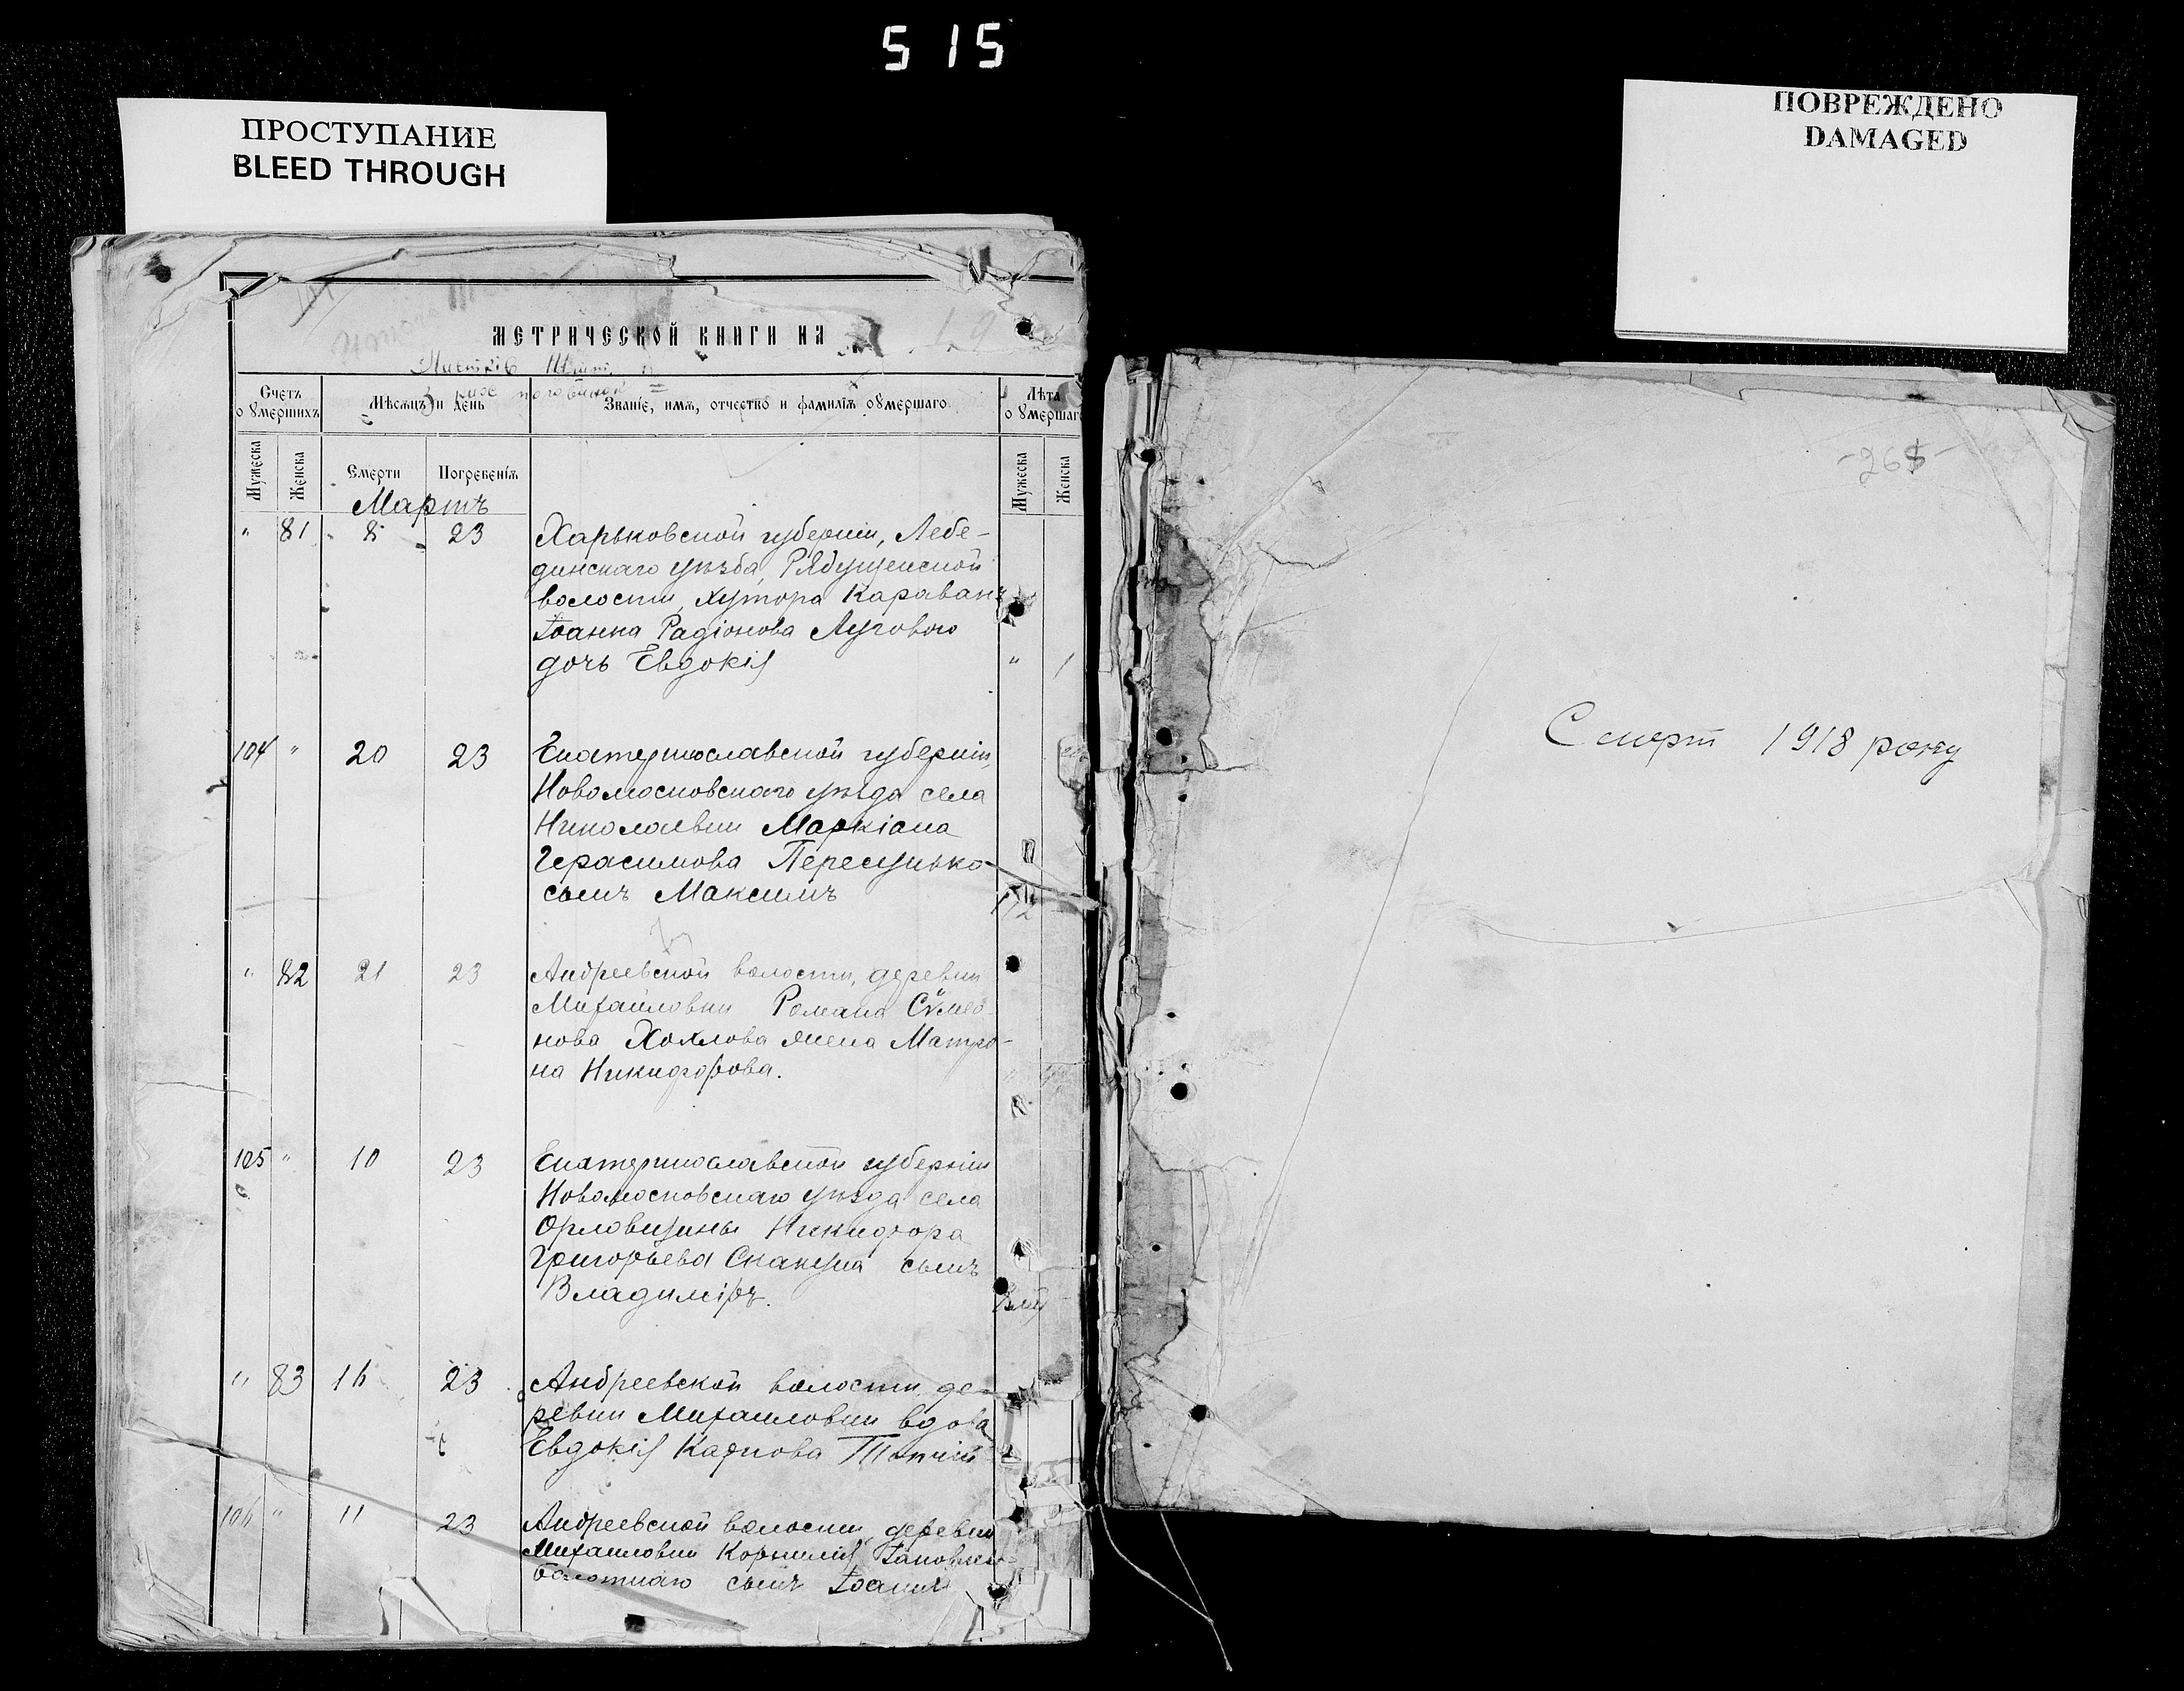 515
ПРОСТУПАНИЕ
BLEED THROUGH
ПОВРЕЖДЕНО
DAMAGED
МЕТРИЧЕСКОЙ КНИГИ НА
Счетъ оумершихъ
Мѣсяцъ и день
Званіе, имя, отчество и фамилія оумершаго.
Лѣта оумершаг
Мужеска
Женска
Смерти
Погребенія
Мужеска
Женска
Мартъ
" 81 8 23 Харьковской губерніи, Лебе-
динскаго уѣзда, Рябушенской
волости, хутора Караванъ
Іоанна Радіонова Лугового
дочь Евдокія " 1
104 " 20 23 Екатеринославской губерніи,
Новомосковскаго уѣзда села
Николаевки Маркіана
Герасимова
сынъ Максимъ 1/2
" 82 21 23 Андреевской волости, деревни
Михайловки Романа Сѵмео-
нова Хохлова жена Матро-
на Никифорова.
105 " 10 23 Екатеринославской губерніи
Новомосковскаго уѣзда села
Орловщины Никифора
Григорьева Скакуна сынъ
Владиміръ.
" 83 16 23 Андреевской волости де-
ревни Михайловки вдова
Евдокія Карпова
106 " 11 23 Андреевской волости, деревни
Михайловки Корнилія
Болотнаго сынъ Іоаннъ
-265-
Смерт 1918 року